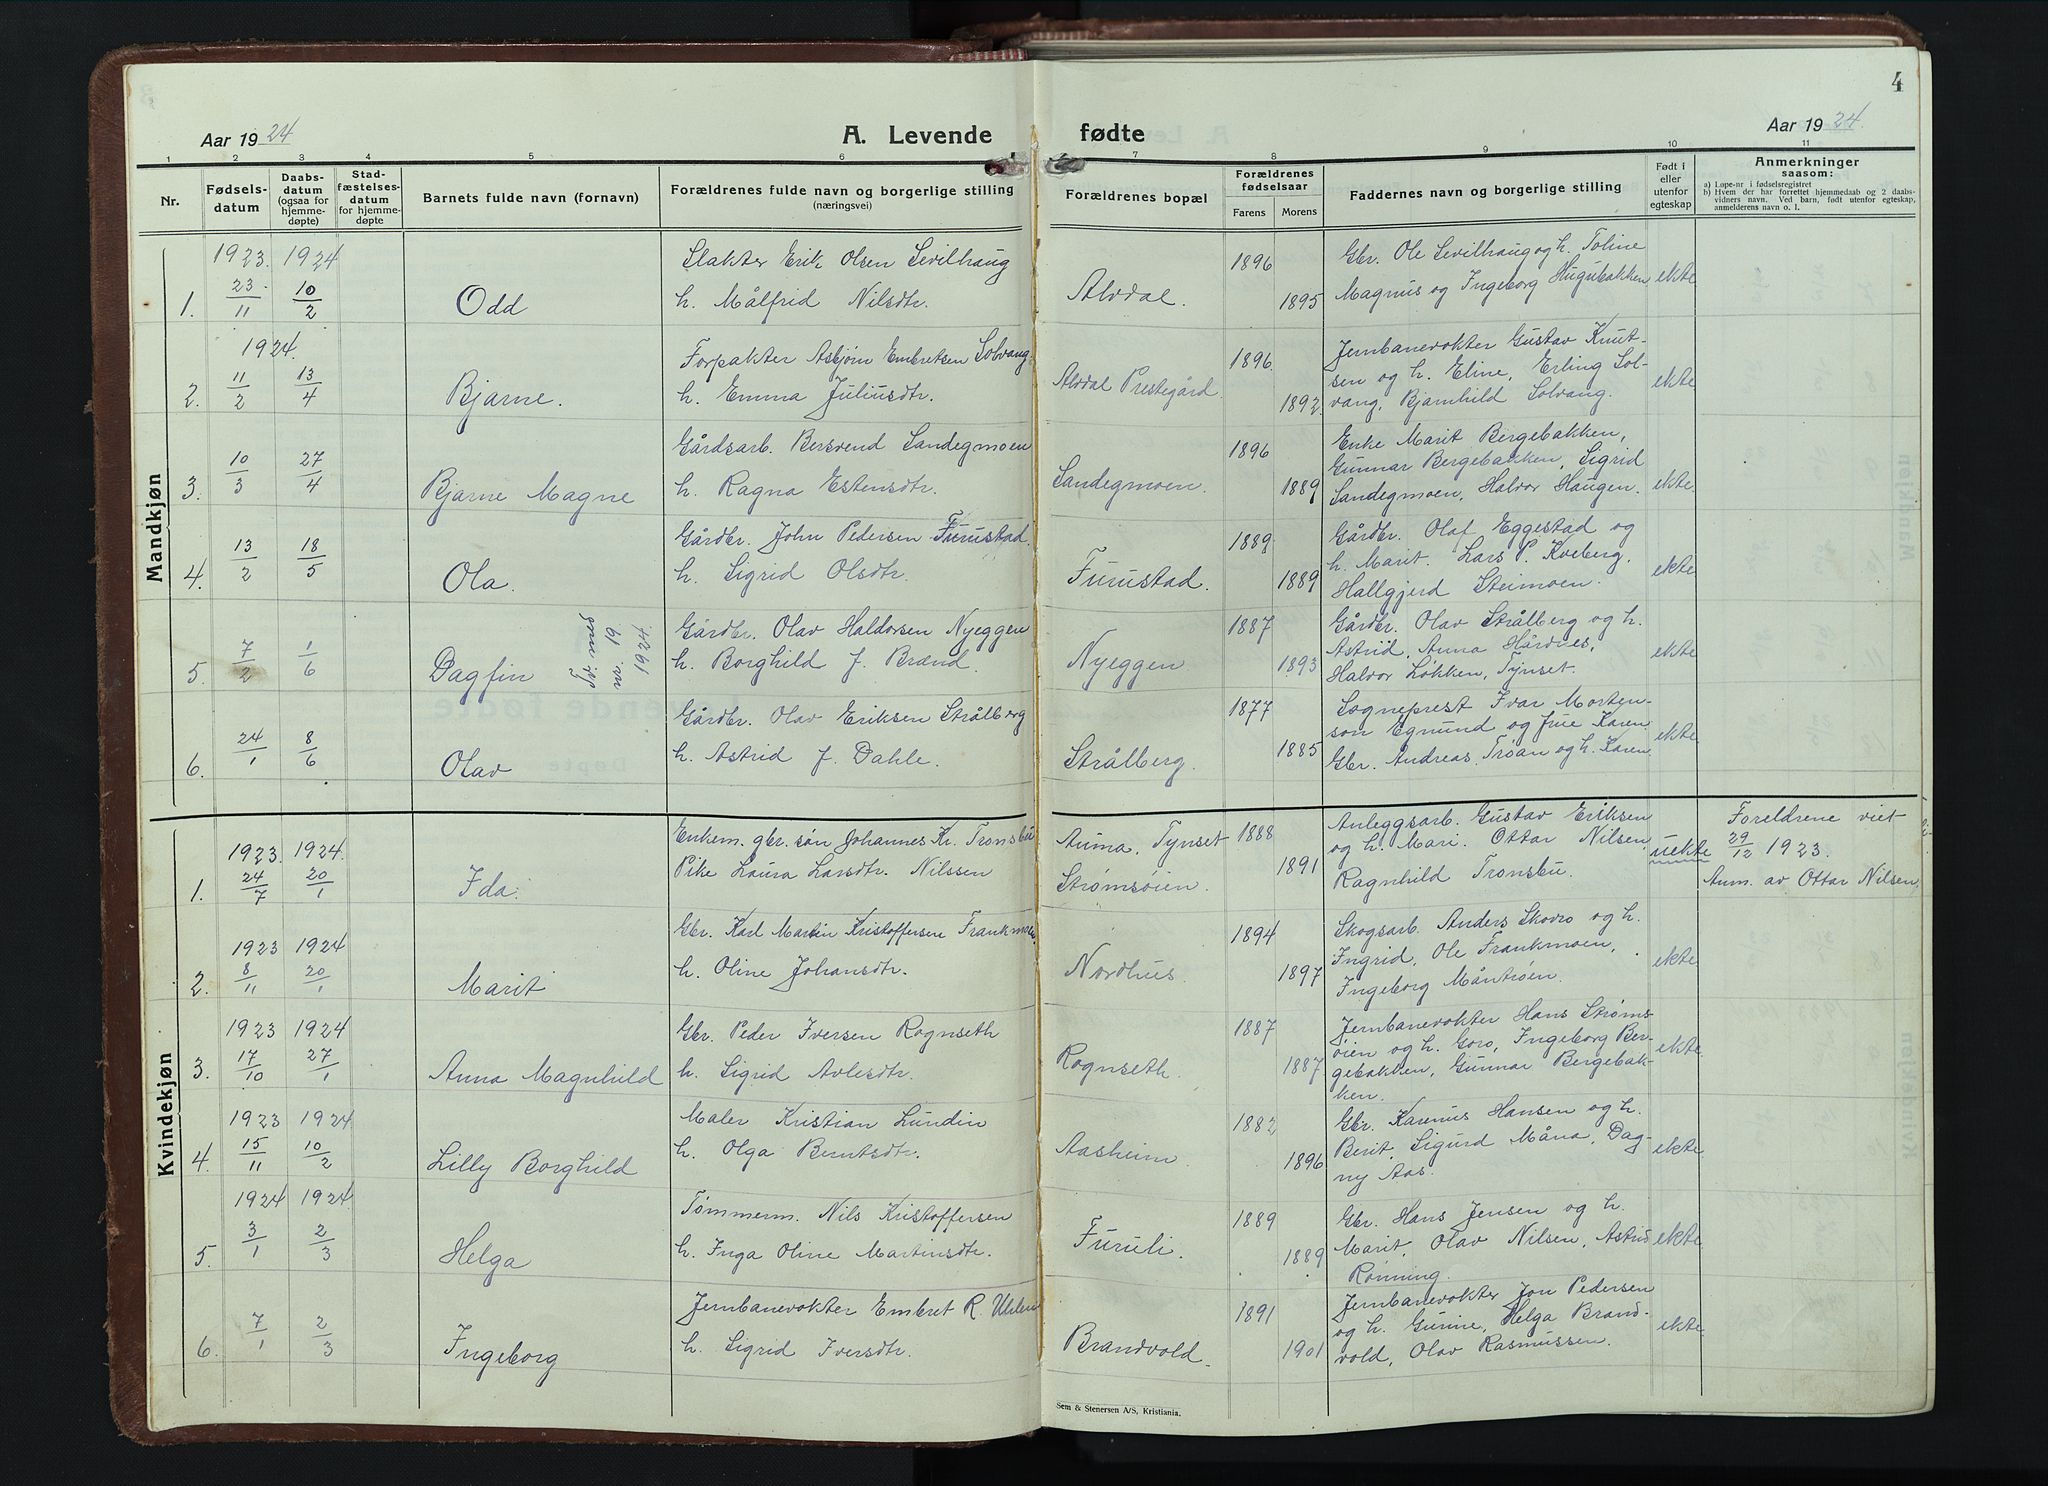 4
Aar 1924
A. Levende fødte
Aar 1924.
1 2 3 4 5 6 7 8 9 10 11
Nr.
Fødselsdatum
Daabsdatum (ogsaa for hjemmedøpte)
Stadfæstelsesdatum for hjemmedøpte
Barnets fulde navn (fornavn)
Forældrenes fulde navn og borgerlige stilling
(næringsvei)
Forældrenes bopæl
Forældrenes fødselsaar
Farens Morens
Faddernes navn og borgerlige stilling
Født i eller utenfor egteskap
Anmerkninger saasom:
a) Løpe-nr i fødselsregistret
b) Hvem der har forrettet hjemmedaab og 2 daabsvidners navn. Ved barn, født utenfor egteskap, anmelderens navn o. l.
Mandkjøn
1923. 1924 Slakter Erik Olsen Sevilhaug 1896 Gbr. Ole Sevilhaug og h. Toline
1. 23/11 10/2 Odd h. Målfrid Nilsdtr. Alvdal. 1895 Magnus og Ingeborg Hugubakken ekte
1924. Forpakter Asbjørn Embretsen Solvang 1896 Jernbanevokter Gustav Knut-
2. 11/2 13/4 Bjarne. h. Emma Juliusdtr. Alvdal Prestegård. 1892 sen og h. Eline, Erling Sol- ekte
vang, Bjarnhild Solvang.
Gårdsarb. Bersvend Sandegmoen 1896 Enke Marit Bergebakken,
3. 10/3 27/4 Bjarne Magne h. Ragna Estensdtr. Sandegmoen. 1889 Gunnar Bergebakken, Sigrid ekte
Sandegmoen, Halvor Haugen.
Gårdbr. John Pedersen Furustad 1889 Gårdbr. Olaf Eggestad og
4. 13/2 18/5 Ola. h. Sigrid Olsdtr. Furustad. 1889 h. Marit. Lars P. Kveberg, ekte
Hallgjerd Steimoen.
Gårdbr. Olav Haldorsen Nyeggen 1887 Gårdbr. Olav Strålberg og h.
5. 7/2 1/6 Dagfin h. Borghild f. Brænd. Nyeggen 1893 Astrid, Anna Hårdnes, ekte
Halvor Løkken, Tynset.
nr. 19
1924.
Gårdbr. Olav Eriksen Strålberg 1877 Sogneprest Ivar Morten-
6. 24/1 8/6 Olav h. Astrid f. Dahle. Strålberg. 1885 son Egnund og frue Karen ekte
Gbr. Andreas Trøan og h. Karen
Kvindekjøn
Enkem. gbr. søn Johannes Kr. Tronsbu Auma, Tynset 1888 Anleggsarb. Gustav Eriksen Foreldrene viet
1923. 1924. Pike Laura Larsdtr. Nilssen Strømsøien. 1891 og h. Mari. Ottar Nilsen, uekte 29/12 1923.
1. 24/7 20/1 Ida. Ragnhild Tronsbu. Anm. av Ottar Nilsen
Gbr. Karl Martin Kristoffersen Frankmoen 1894 Skogsarb. Anders Skovro og h.
1923 1924
2. 8/11 20/1 Marit h. Oline Johansdtr. Nordhus 1897 Ingrid, Ole Frankmoen, ekte
Ingeborg Måntrøen.
1923 1924 Gbr. Peder Iversen Rognseth 1887 Jernbanevokter Hans Strøms-
3. 17/10 27/1 Anna Magnhild h. Sigrid Avlesdtr. Rognseth. 1887 øien og h. Goro, Ingeborg Ber- ekte
gebakken, Gunnar Bergebak-
ken.
1923 1924 Maler Kristian Lundin 1882 Gbr. Karenus Hansen og h.
4. 15/11 10/2 Lilly Borghild h. Olga Berntsdtr. Aasheim. 1896 Berit, Sigurd Måna, Dag- ekte
ny Aas.
1924 1924 Tømmerm. Nils Kristoffersen 1889 Gbr. Hans Jensen og h.
5. 3/1 2/3 Helga h. Inga Oline Martinsdtr. Furuli. 1889 Marit, Olav Nilsen, Astrid ekte
Rønning.
Jernbanevokter Embret R. 1891 Jernbanevokter Jon Pedersen
6. 7/1 2/3 Ingeborg h. Sigrid Iversdtr. Brandvold. 1901 og h. Gunne, Helga Brand- ekte
vold, Olav Rasmussen.
Sem & Stenersen A/S, Kristiania.